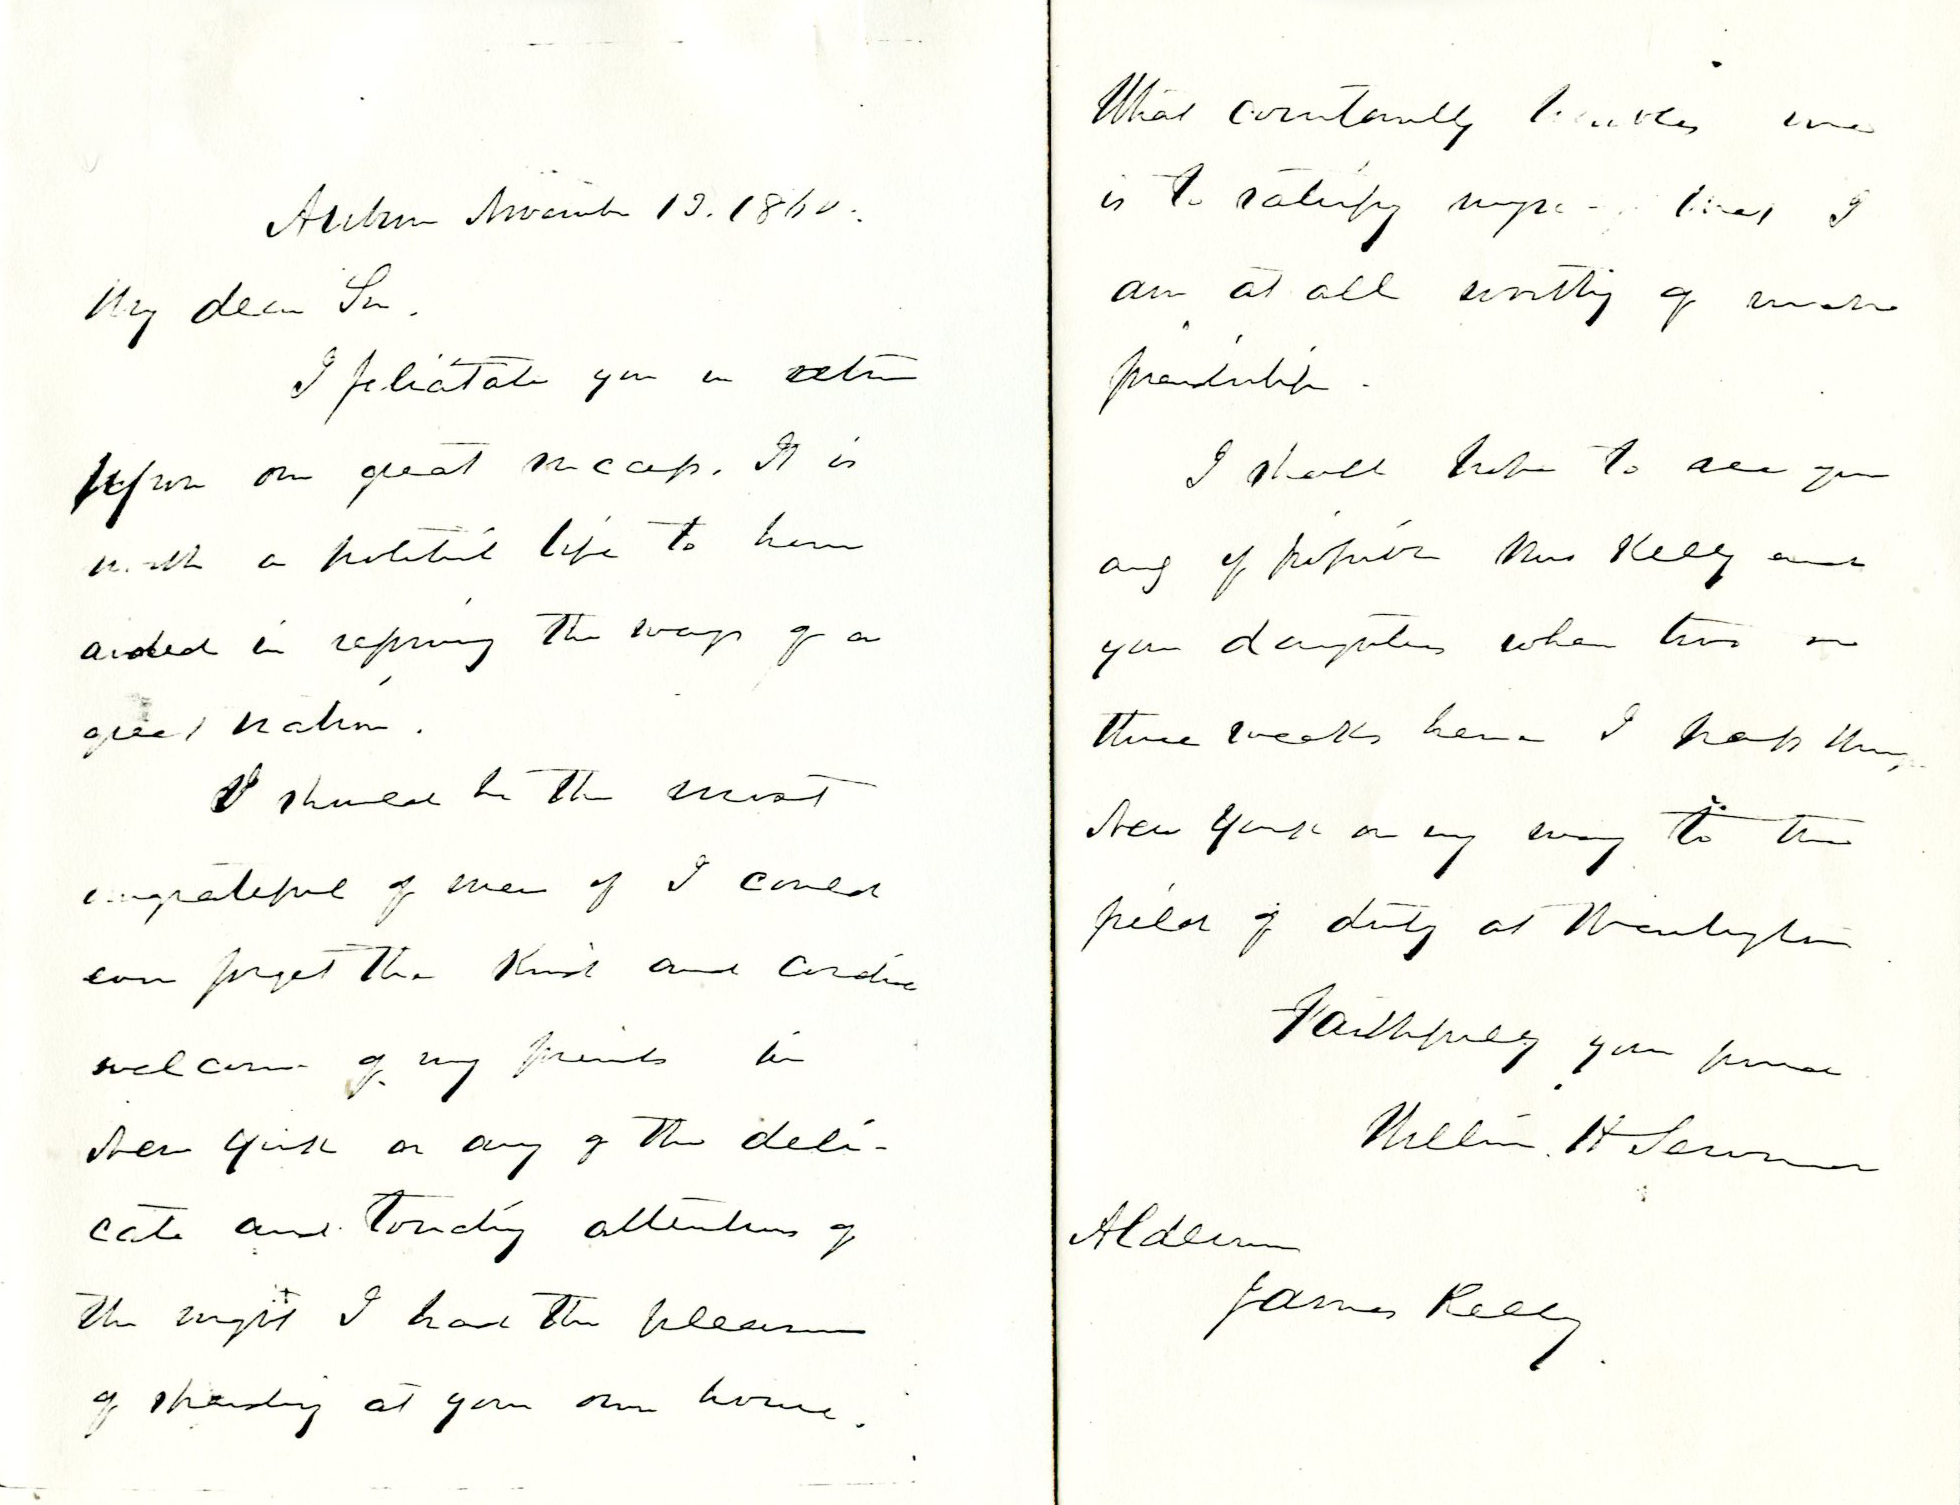 Auburn November 13. 1860.
My dear Sir.
I felicitate you in return
upon our great success. It is
worth a political life to have
aided in reforming the ways of a
great nation.
I should be the most
ungrateful of men if I could
ever forget the kind and cordial
welcome of my friends in
New York or any of the deli-
cate and touching attentions of
the night I had the pleasure
of spending at your own house.
What constantly troubles me
is to satisfy myself that I
am at all worthy of such
friendship.
I shall hope to see you
and if possible Mrs Kelly and
your daughters when two or
three weeks hence I pass thro,
New York on my way to the
field of duty at Washington
Faithfully your friend
William H Seward
Alderman
James Kelly